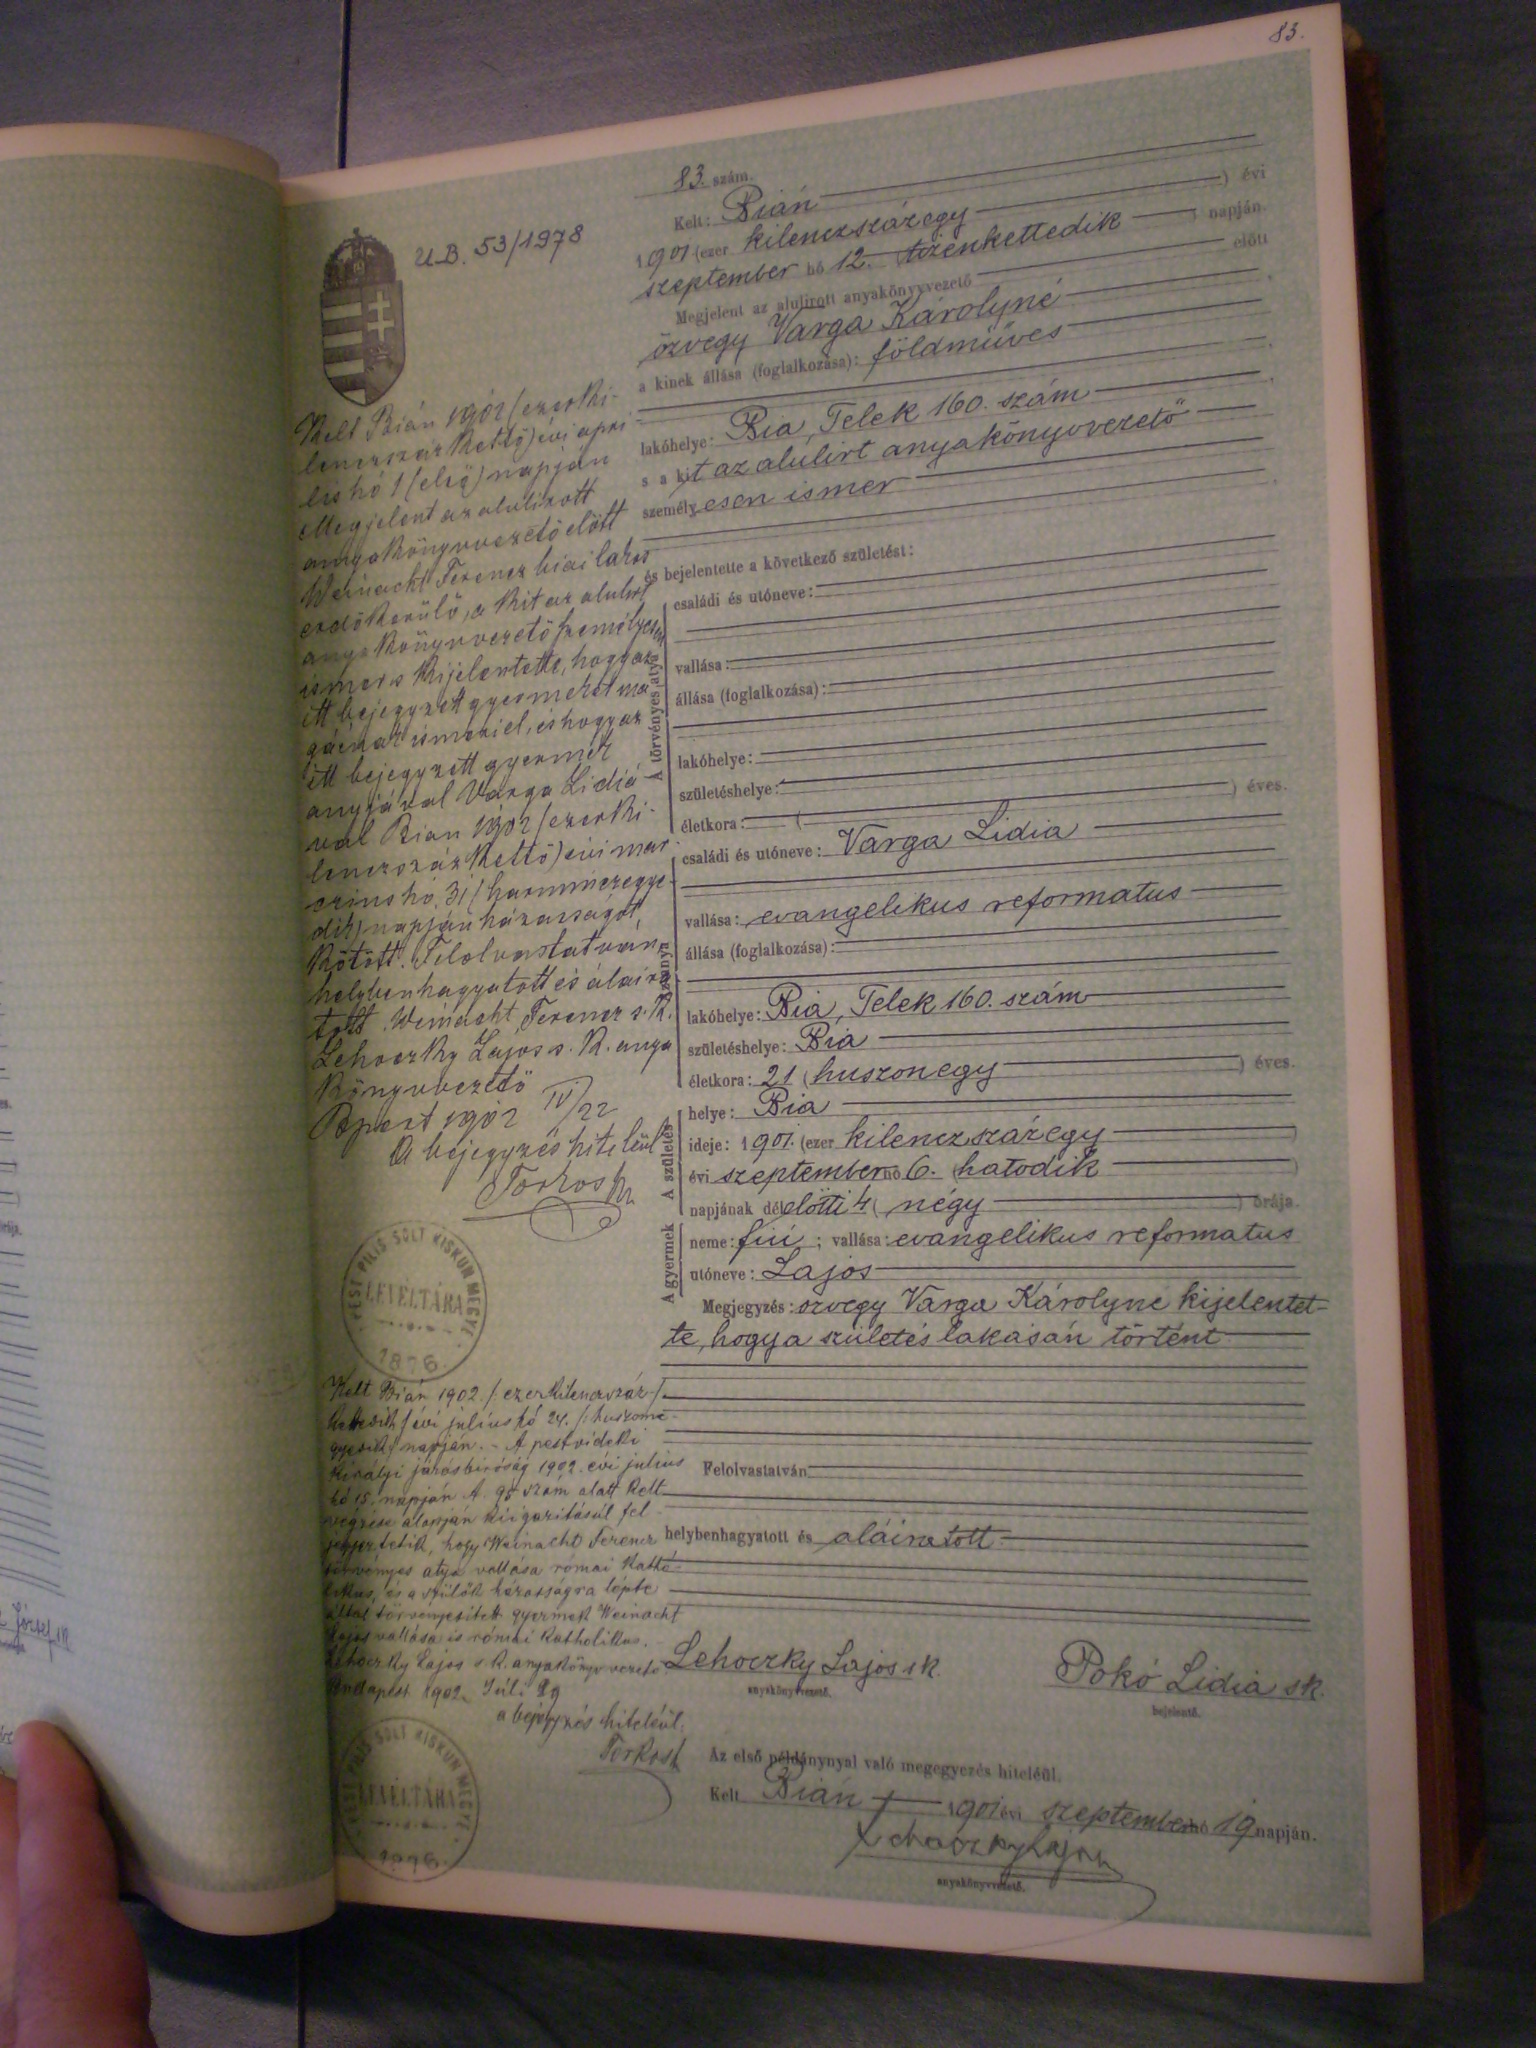 83.
83. szám.
Kelt: Bián
1901 (ezer kilenczszázegy ) évi
szeptember hó 12. (tizenkettedik ) napján.
Megjelent az alulirott anyakönyvvezető előtt
özvegy Varga Károlyné
a kinek állása (foglalkozása): földműves
lakóhelye: Bia, Telek 160. szám
s a kit az alulirt anyakönyvvezető
személyesen ismer
és bejelentette a következő születést:
A törvényes atya
családi és utóneve:
vallása:
állása (foglalkozása):
lakóhelye:
születéshelye:
életkora: ( ) éves.
családi és utóneve: Varga Lidia
vallása: evangelikus reformatus
állása (foglalkozása):
lakóhelye: Bia, Telek 160. szám
születéshelye: Bia
életkora: 21 (huszonegy ) éves.
A születés
helye: Bia
ideje: 1901. (ezer kilenczszázegy )
évi szeptember hó 6. (hatodik )
napjának délelőtti 4 (négy ) órája.
A gyermek
neme: fiú ; vallása: evangelikus reformatus
utóneve: Lajos
Megjegyzés: özvegy Varga Károlyné kijelentet-
te, hogy a születés lakásán történt
Felolvastatván
helybenhagyatott és aláiratott
Lehoczky Lajos sk.
anyakönyvvezető.
Pokó Lidia sk.
bejelentő.
Az első példánynyal való megegyezés hiteléül.
Kelt Bián 1901 évi szeptember hó 19 napján.
Lehoczky Lajos
anyakönyvvezető.
U.B. 53/1978
Kelt Bián 1902 (ezerki-
lenczszázkettő) évi ápri
lis hó 1 (első) napján
Megjelent az alulirott
anyakönyvvezető előtt
Weinacht Ferencz biai lakos
erdőkerülő, a kit az alulirt
anyakönyvvezető személyesen
ismer s kijelentette, hogy az
itt bejegyzett gyermeket ma
gáénak ismeri el, és hogy az
itt bejegyzett gyermek
anyjával Varga Lidiá
val Bian 1902 (ezerki-
lenczszázkettő) évi már
czius hó 31 (harminczegye
dik) napján házasságot
kötött. Felolvastatván
helybenhagyatott és aláira
tott. Weinacht Ferencz s.k.
Lehoczky Lajos s.k. anya
könyvvezető
Bpest 1902 IV/22
A bejegyzés hiteléül
Torkos
PEST PILIS SOLT KISKUN MEGYE
LEVÉLTÁRA
1876
Kelt Bián 1902 /: ezerkilenczszáz-
kettedik / évi július hó 24. /: huszonne-
gyedik / napján. - A pestvidéki
királyi járásbiróság 1902. évi július
hó 15. napján A. 95 szám alatt kelt
végzése alapján kiigazitásúl fel
jegyeztetik, hogy Weinacht Ferencz
törvényes atya vallása római kathó-
likus, és a szülők házasságra lépte
által törvényesitett gyermek Weinacht
Lajos vallása is római katholikus.
Lehoczky Lajos s.k. anyakönyvvezető
Budapest 1902. Júli 29
a bejegyzés hiteléül.
Torkos
PEST PILIS SOLT KISKUN MEGYE
LEVÉLTÁRA
1876
József